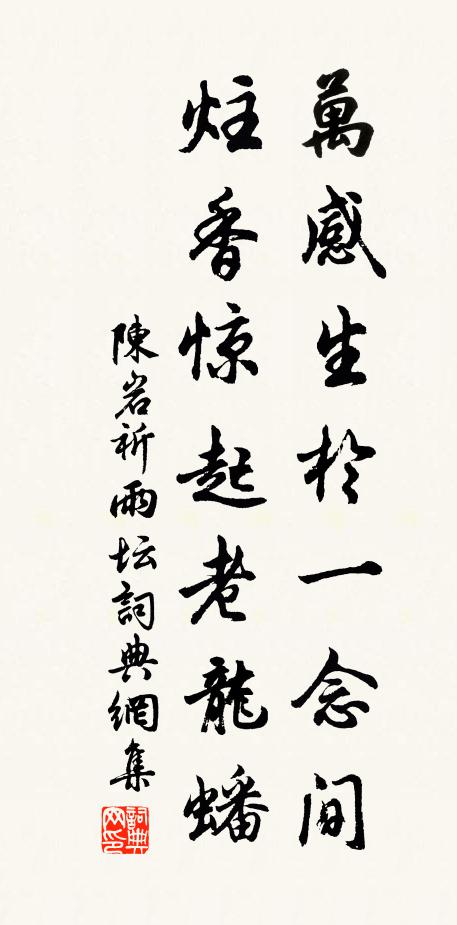 萬感生於一念间
炷香惊起老龍蟠
陳岩祈雨坛詞典網集
詞典网印